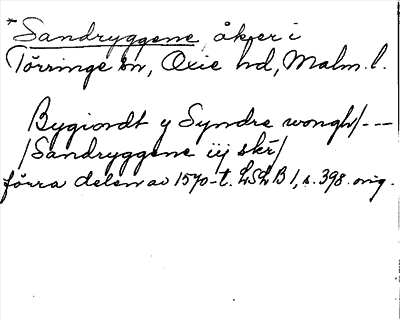 *Sandryggene, åker i
Törringe sn, Oxie hd, Malm. l.
Bygiordt y Syndre wongh/---
/Sandryggene iij skr/
förra delen av 1570-t. LSLB 1, s. 398. orig.